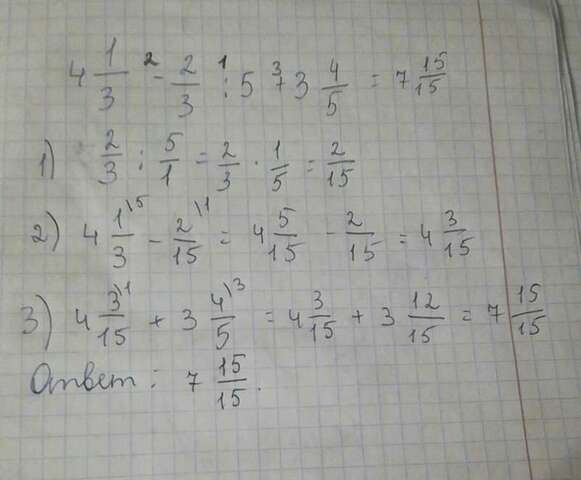 4 1/3 -² 2/3 :¹ 5 +³ 3 4/5 = 7 15/15
1) 2/3 : 5/1 = 2/3 · 1/5 = 2/15
2) 4 1\5/3 - 2\1/15 = 4 5/15 - 2/15 = 4 3/15
3) 4 3\1/15 + 3 4\3/5 = 4 3/15 + 3 12/15 = 7 15/15
Ответ: 7 15/15.